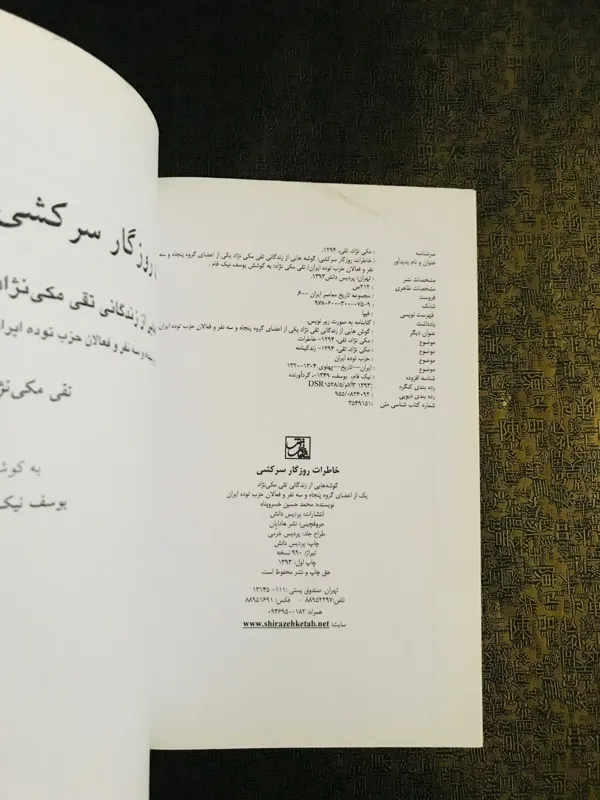 روزگار سرکشی
از زندگانی تقی مکی‌نژاد
و سه نفر و فعالان حزب توده ایران
تقی مکی‌نژاد
به کوشش
یوسف نیک
سرشناسه : مکی نژاد، تقی، ۱۲۹۴.
عنوان و نام پدیدآور : خاطرات روزگار سرکشی: گوشه هایی از زندگانی تقی مکی نژاد یکی از اعضای گروه پنجاه و سه
نفر و فعالان حزب توده ایران/ تقی مکی نژاد؛ به کوشش یوسف نیک فام.
مشخصات نشر : تهران: پردیس دانش، ۱۳۹۳.
مشخصات ظاهری : ۲۱۲ص
فروست : مجموعه تاریخ معاصر ایران ۶۰۰
شابک : ۹۷۸-۶۰۰-۳۰۰-۰۷۵-۹
فهرست نویسی : فیپا
یادداشت : کتابنامه به صورت زیر نویس.
عنوان دیگر : گوش هایی از زندگانی تقی نژاد یکی از اعضای گروه پنجاه و سه نفر و فعالان حزب توده ایران.
موضوع : مکی نژاد، تقی، ۱۲۹۴- خاطرات.
موضوع : مکی نژاد، تقی، ۱۲۹۴- زندگینامه
موضوع : حزب توده ایران
موضوع : ایران—تاریخ—پهلوی ۱۳۰۴-۱۳۲۰
شناسه افزوده : نیک فام، یوسف، ۱۳۴۹-، گردآورنده
رده بندی کنگره : ۱۳۹۳ DSR۱۵۲۸/۵/م۷آ۳
رده بندی دیویی : ۹۵۵/۰۸۲۴۰۹۲
شماره کتاب شناسی ملی : ۳۵۴۹۱۵۱
خاطرات روزگار سرکشی
گوشه‌هایی از زندگانی تقی مکی‌نژاد
یک از اعضای گروه پنجاه و سه نفر و فعالان حزب توده ایران
نویسنده: محمد حسین خسروپناه
انتشارات: پردیس دانش
حروفچینی: نشر هادیان
طراح جلد: پردیس خرمی
چاپ: پردیس دانش
تیراژ: ۹۹۰ نسخه
چاپ اول: ۱۳۹۳
حق چاپ و نشر محفوظ است.
تهران، صندوق پستی :۱۱۱- ۱۳۱۴۵
تلفن:۸۸۹۵۲۲۹۷ - فکس: ۸۸۹۵۱۶۹۱
همراه: ۰۹۳۶۹۵۰۰۱۸۲
سایت: www.shirazehketab.net